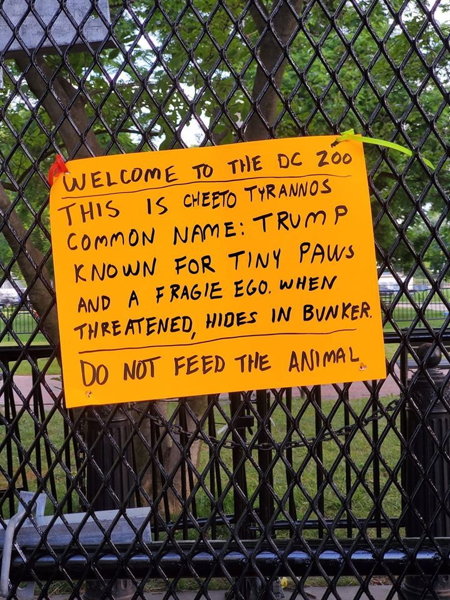 WELCOME TO THE DC ZOO
THIS IS CHEETO TYRANNOS
COMMON NAME: TRUMP
KNOWN FOR TINY PAWS
AND A FRAGIE EGO. WHEN
THREATENED, HIDES IN BUNKER.
DO NOT FEED THE ANIMAL